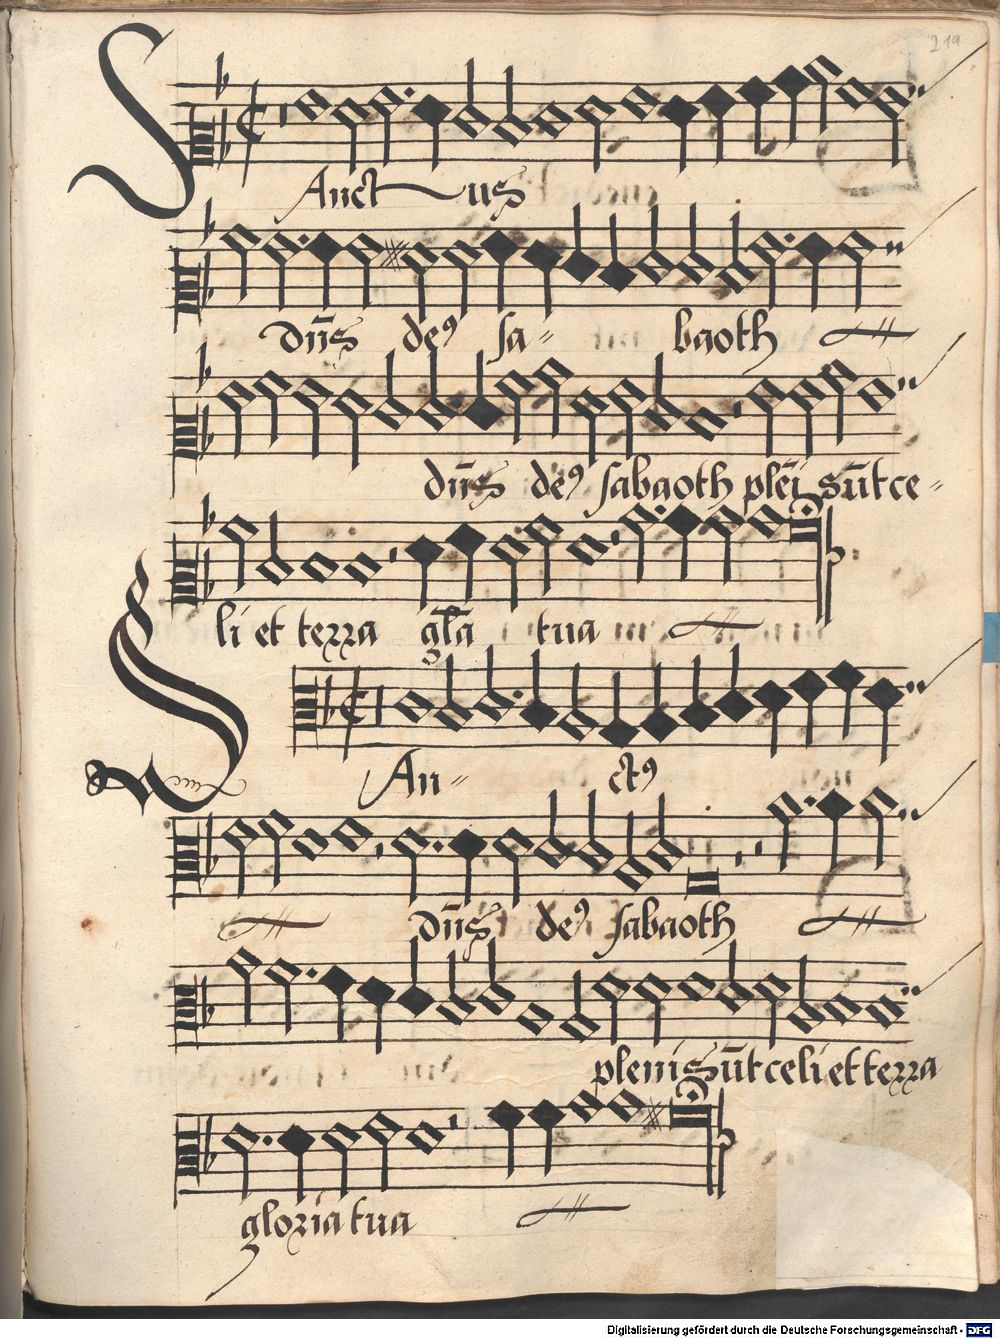 219
SAnctus
dn̄s deꝰ sa= baoth
dn̄s deꝰ sabaoth plēi sūt ce=
li et terra gl̄a tua
SAn= ctꝰ
dn̄s deꝰ sabaoth
pleni sūt celi et terra
gloria tua
Digitalisierung gefördert durch die Deutsche Forschungsgemeinschaft - DFG